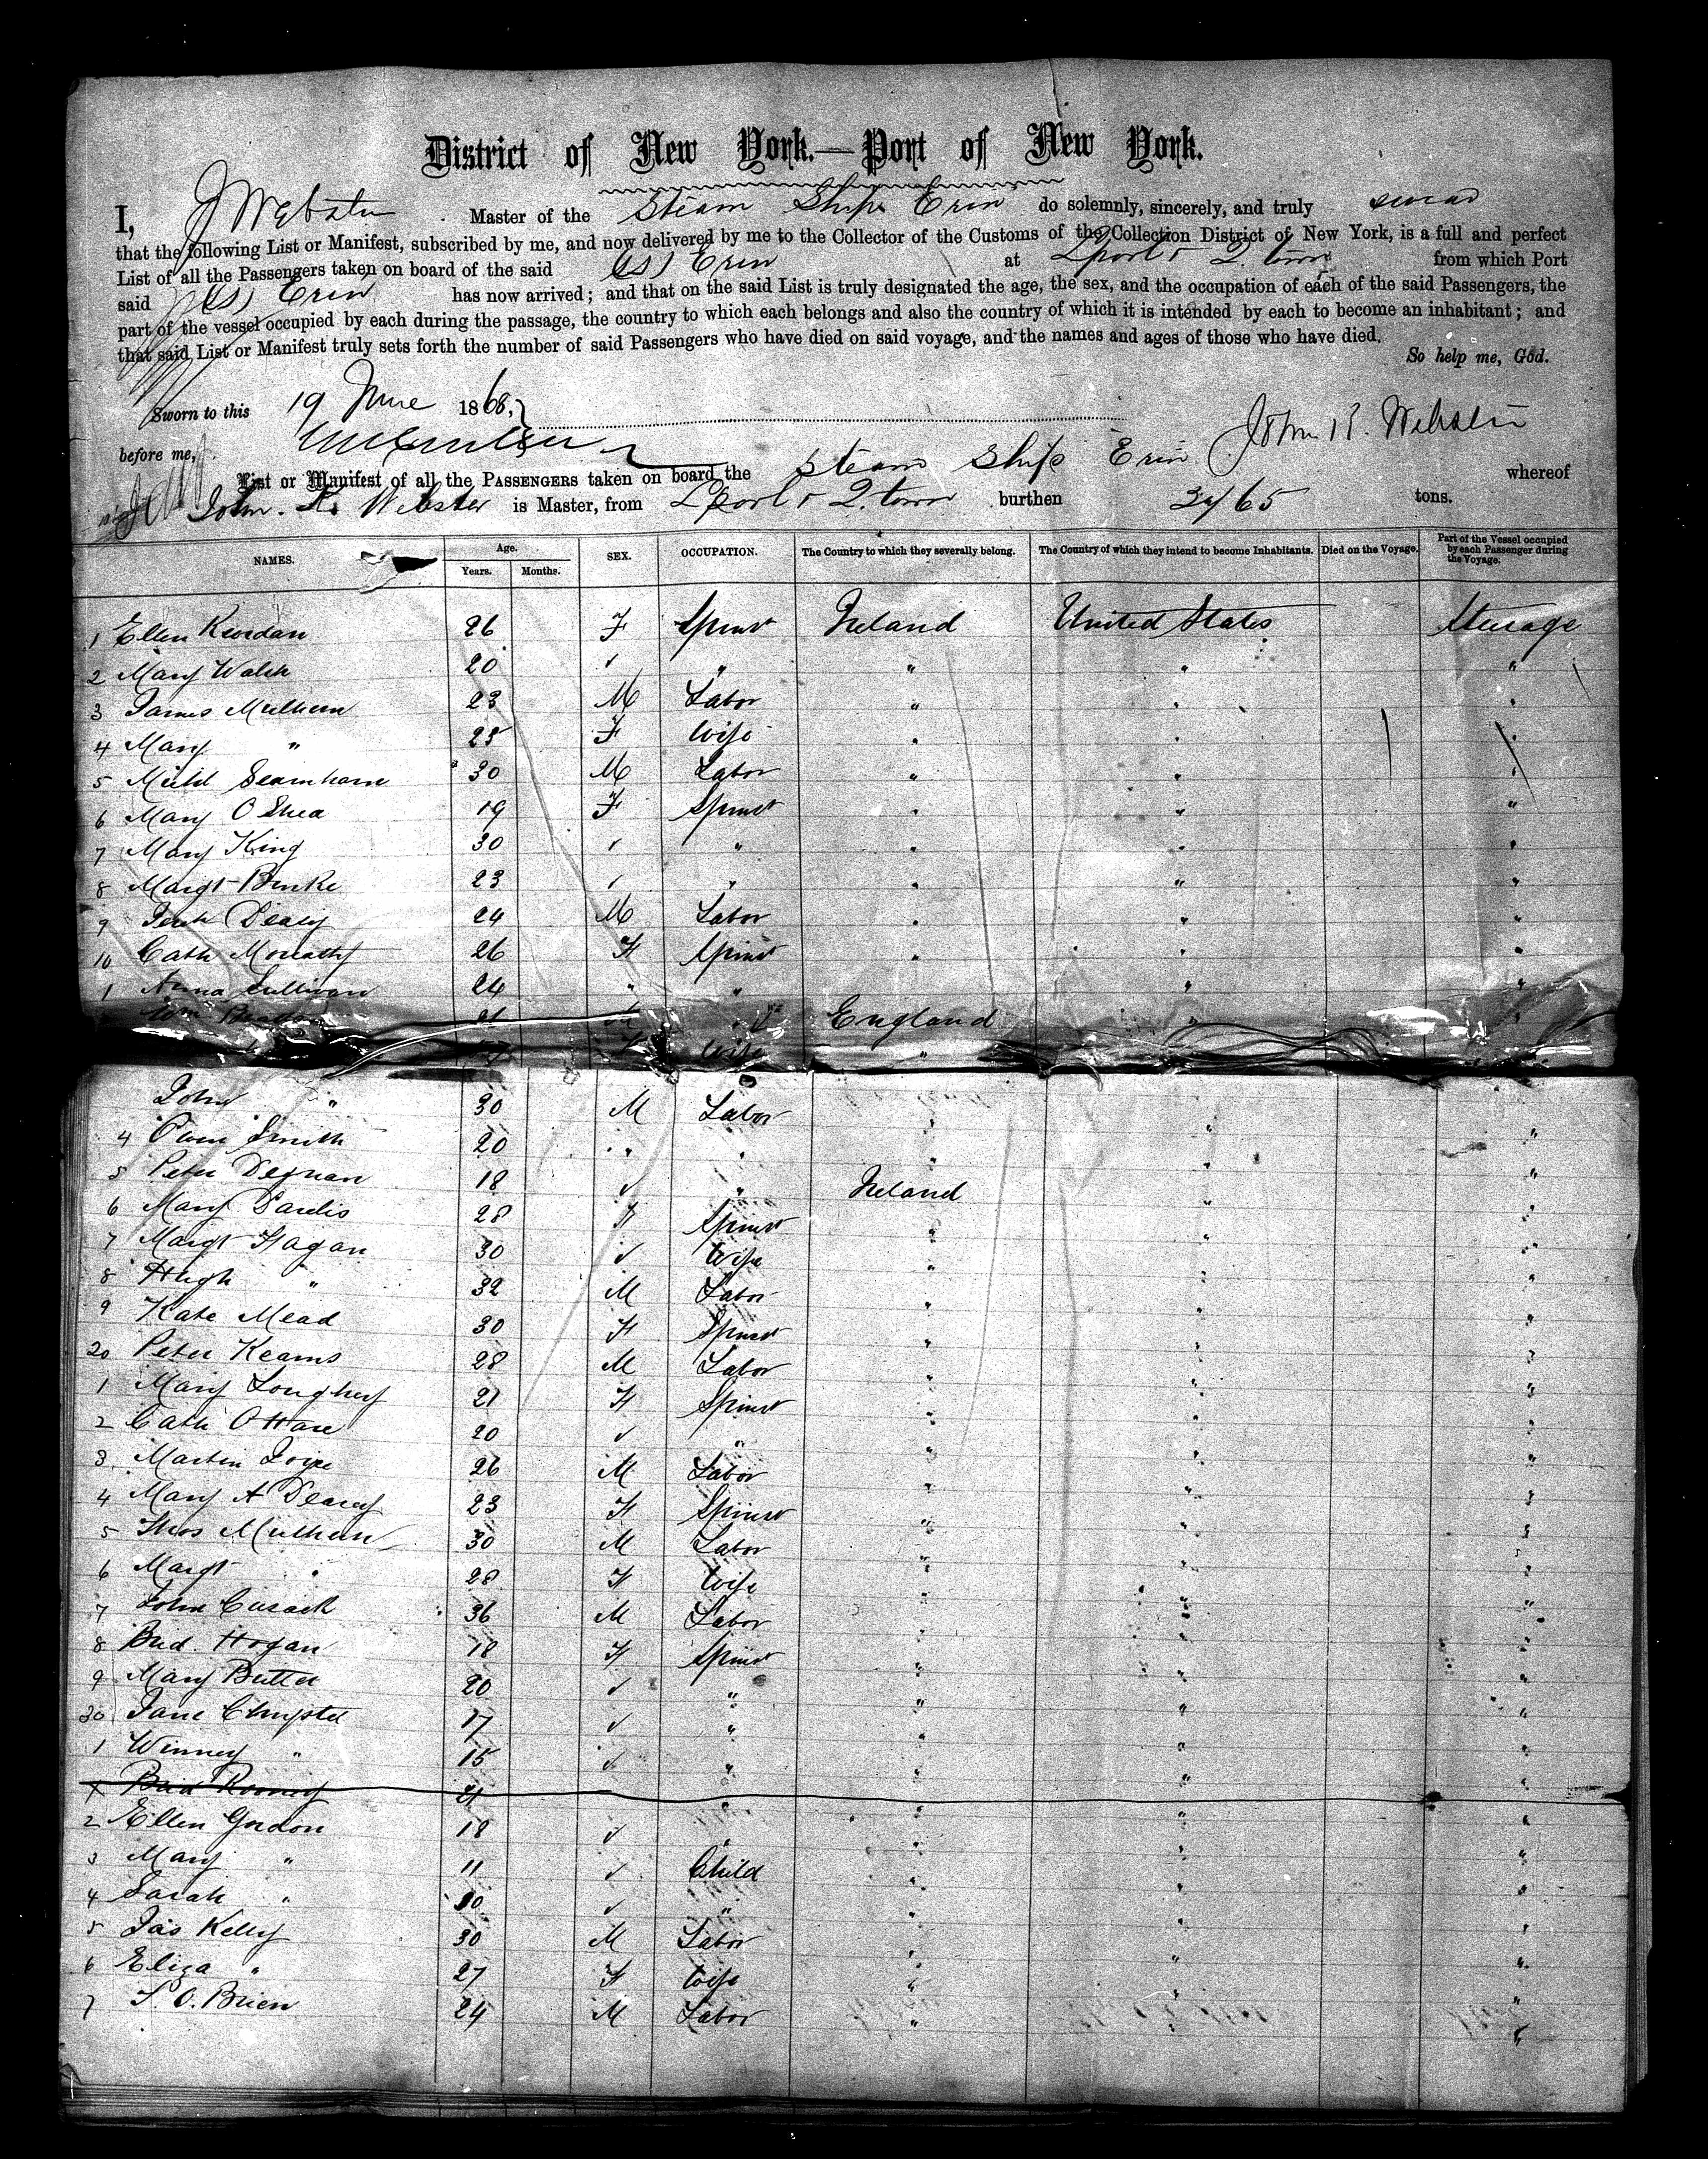 District of New York.—Port of New York.
I, J Webster Master of the Steam Ship Erin do solemnly, sincerely, and truly swear
that the following List or Manifest, subscribed by me, and now delivered by me to the Collector of the Customs of the Collection District of New York, is a full and perfect
List of all the Passengers taken on board of the said (SS) Erin at Lpool & Q. town from which Port
said (SS) Erin has now arrived; and that on the said List is truly designated the age, the sex, and the occupation of each of the said Passengers, the
part of the vessel occupied by each during the passage, the country to which each belongs and also the country of which it is intended by each to become an inhabitant; and
that said List or Manifest truly sets forth the number of said Passengers who have died on said voyage, and the names and ages of those who have died.
So help me, God.
Sworn to this 19 June 1868,
before me, John K. Webster
List or Manifest of all the PASSENGERS taken on board the Steam Ship Erin whereof
John. K. Webster is Master, from Lpool & Q. town burthen tons.
NAMES. Age. Years. Months. SEX. OCCUPATION. The Country to which they severally belong. The Country of which they intend to become Inhabitants. Died on the Voyage. Part of the Vessel occupied by each Passenger during the Voyage.
1 Ellen Reordan 26 F Spinst Ireland United States Steerage
2 Mary Walsh 20 ✓ " " " "
3 James Mulhern 23 M Labor " " "
4 Mary " 25 F Wife " " "
5 30 M Labor " " "
6 Mary O Shea 19 F Spinst " " "
7 Mary King 30 ✓ " " " "
8 Margt Burke 23 ✓ " " " "
9 Dealy 24 M Labor " " "
10 Cath Moriarty 26 F Spinst " " "
1 Anna Sullivan 24 " " " "
Wm England " "
F Wife "
John " 30 M Labor " " "
4 Owen Smith 20 " " " " "
5 Peter Degnan 18 ✓ " Ireland " "
6 Mary 28 F Spinst " " "
7 Margt Fagan 30 ✓ Wife " " "
8 Hugh " 32 M Labor " " "
9 Kate Mead 30 F Spinst " " "
20 Peter Kearns 28 M Labor " " "
1 Mary Loughery 21 F Spinst " " "
2 Cath O Hare 20 ✓ " " " "
3 Martin Joyce 26 M Labor " " "
4 Mary A 23 F Spinst " " "
5 Thos Mulhern 30 M Labor " " "
6 Margt " 28 F Wife " " "
7 John Cusack 36 M Labor " " "
8 Brid. Hogan 18 F Spinst " " "
9 Mary Butler 20 ✓ " " " "
30 Jane 17 ✓ " " " "
1 Winney " 15 ✓ " " " "
x Brid Rooney
2 Ellen Gordon 18 ✓ " " " "
3 Mary " 11 ✓ Child " " "
4 Sarah " 10 ✓ " " " "
5 Jas Kelly 30 M Labor " " "
6 Eliza " 27 F Wife " " "
7 O. Brien 24 M Labor " " "